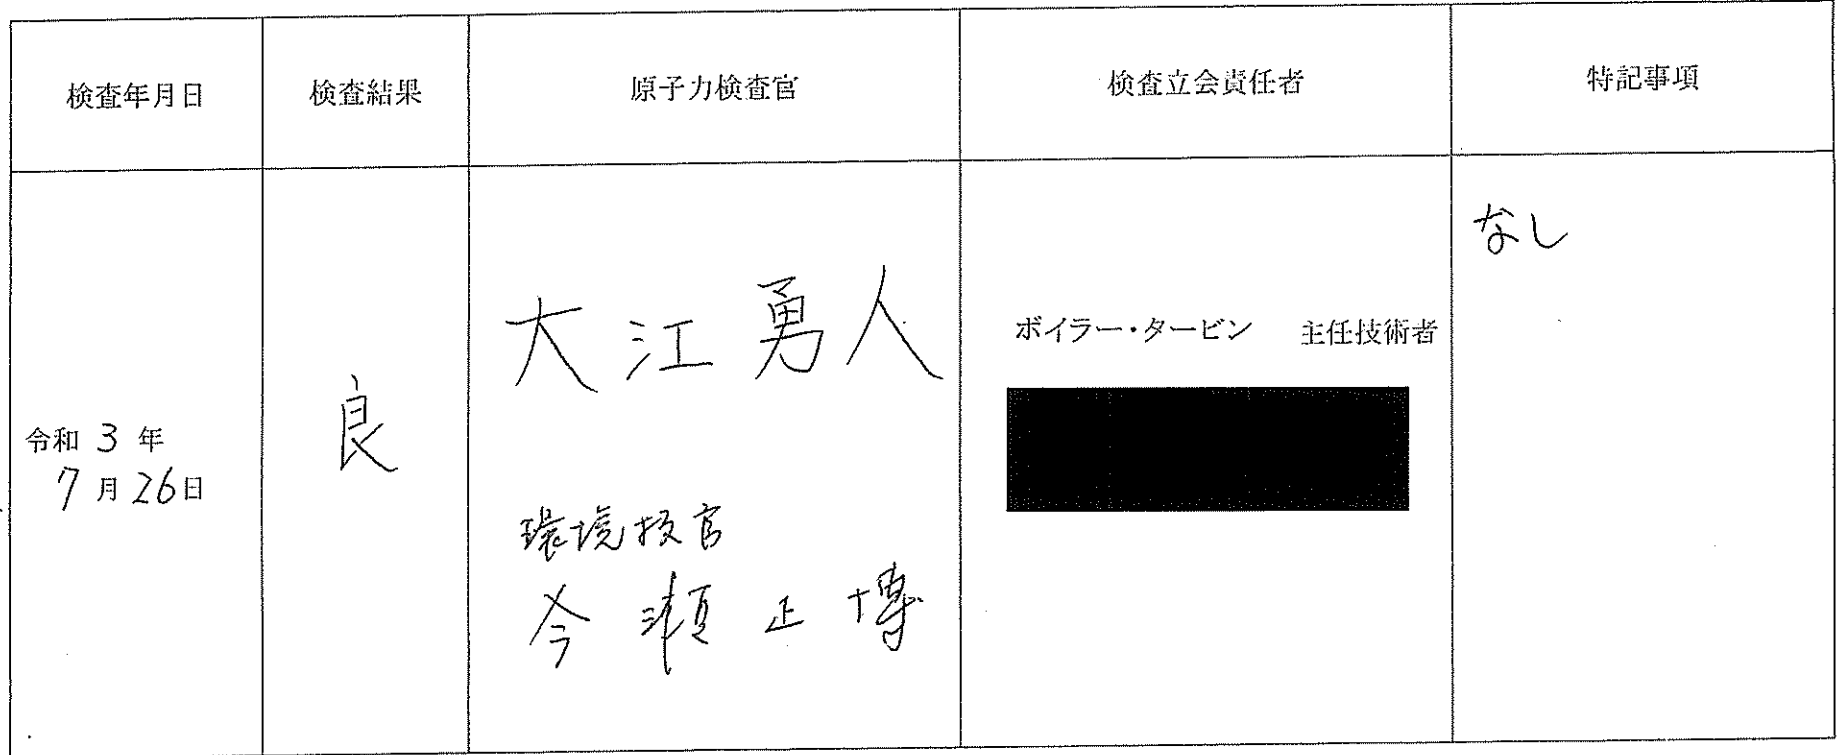 検査年月日
検査結果
原子力検査官
検査立会責任者
特記事項
令和 3 年
7 月 26 日
良
大江勇人
環境技官
今瀬正博
ボイラー・タービン 主任技術者
なし